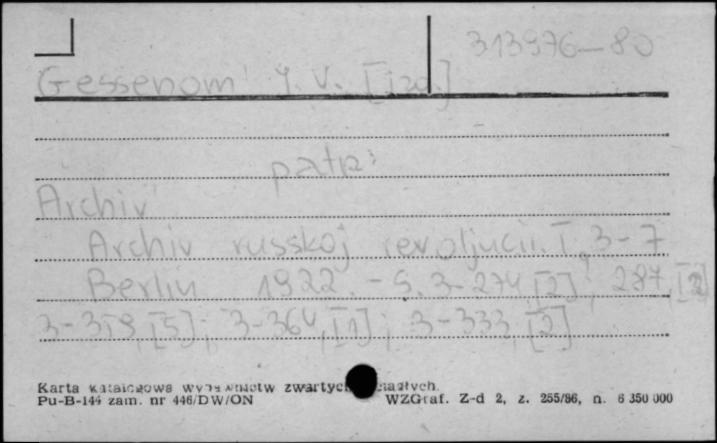 313976-80
Gessenom' I. V. [izd.]
patrz:
Archiv
Archiv russkoj revoljucii. I, 3-7
Berlin 1922. - S. 3-274, [2]; 287, [2]
3-359, [5]; 3-364, [1]; 3-333, [2]
Karta katalogowa wydawnictw zwartych ciągłych.
Pu-B-144 zam. nr 446/DW/ON WZGraf. Z-d 2, z. 255/86, n. 6 350 000